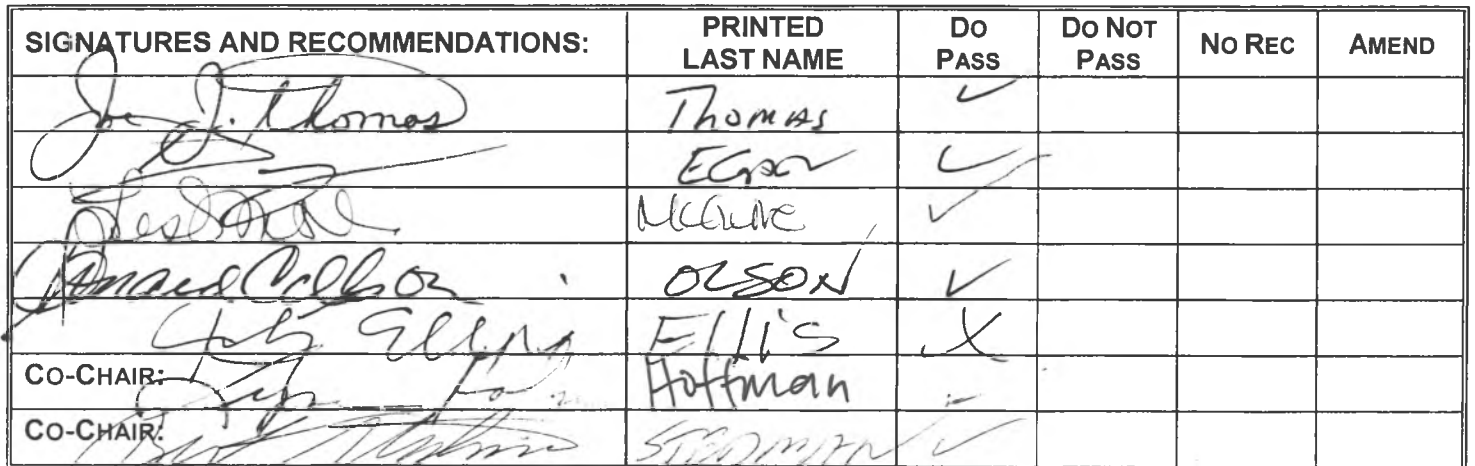 SIGNATURES AND RECOMMENDATIONS: PRINTED LAST NAME DO PASS DO NOT PASS NO REC AMEND
Joe J. Thomas Thomas ✓
Egan ✓
McGuire ✓
Donald C Olson OLSON ✓
Ellis X
CO-CHAIR: Hoffman
CO-CHAIR: STEDMAN ✓